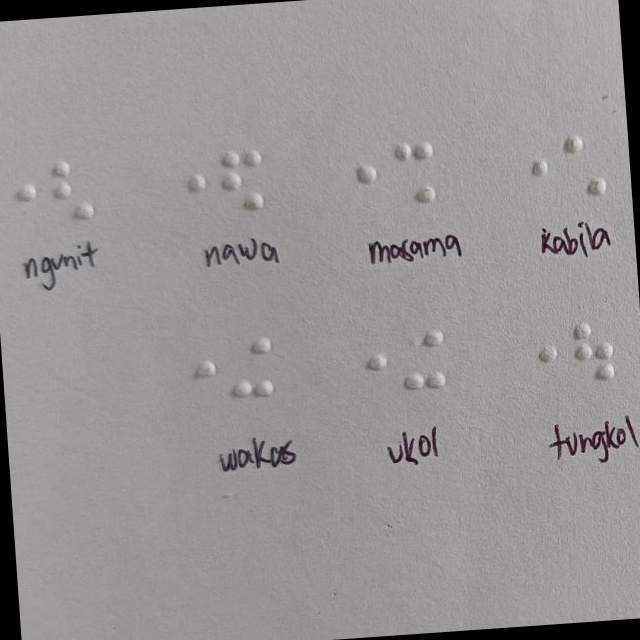 ⠐⠣ ⠐⠫ ⠐⠩ ⠐⠡
ngunit nawa masama kabila
⠐⠬ ⠐⠬ ⠐⠳
wakas ukol tungkol